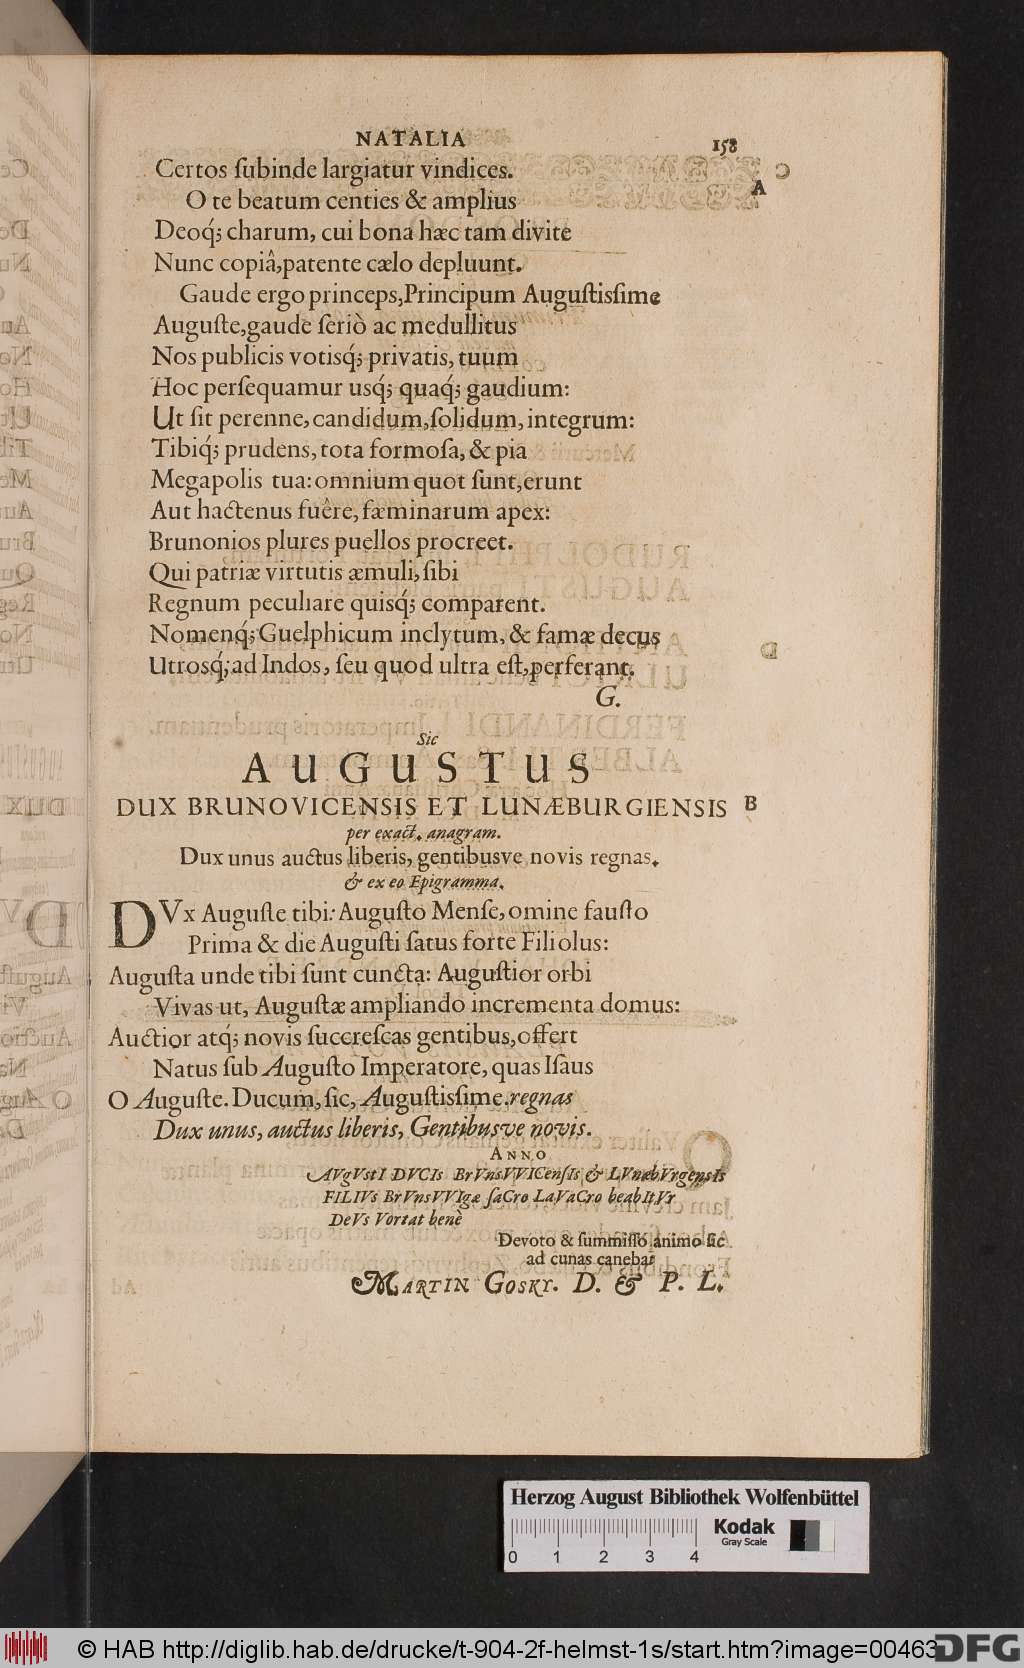 NATALIA 158
Certos ſubinde largiatur vindices.
A
O te beatum centies & amplius
Deoq́; charum, cui bona hæc tam divite
Nunc copiâ,patente cælo depluunt.
Gaude ergo princeps,Principum Auguſtisſime
Auguſte,gaude ſeriò ac medullitus
Nos publicis votisq́; privatis, tuum
Hoc perſequamur usq́; quaq́; gaudium:
Ut ſit perenne, candidum,ſolidum, integrum:
Tibiq́; prudens, tota formoſa, & pia
Megapolis tua: omnium quot ſunt,erunt
Aut hactenus fuêre, fæminarum apex:
Brunonios plures puellos procreet.
Qui patriæ virtutis æmuli, ſibi
Regnum peculiare quisq́; comparent.
Nomenq́; Guelphicum inclytum, & famæ decus
Utrosq́; ad Indos, ſeu quod ultra eſt,perferant.
G.
Sic
AUGUSTUS
DUX BRUNOVICENSIS ET LUNÆBURGIENSIS B
per exact. anagram.
Dux unus auctus liberis, gentibusve novis regnas.
& ex eo Epigramma.
DVx Auguſte tibi: Auguſto Menſe, omine fauſto
Prima & die Auguſti ſatus forte Filiolus:
Auguſta unde tibi ſunt cuncta: Auguſtior orbi
Vivas ut, Auguſtæ ampliando incrementa domus:
Auctior atq́; novis ſuccreſcas gentibus, offert
Natus ſub Auguſto Imperatore, quas Iſaus
O Auguſte. Ducum, ſic, Auguſtisſime. regnas
Dux unus, auctus liberis, Gentibusve novis.
ANNO
AVgVstI DVCIs BrVnsVVICenſIs & LVnæbVrgensIs
FILIVs BrVnsVVIgæ ſaCro LaVaCro beabItVr
DeVs Vortat benè
Devoto & ſummiſſo animo ſic
ad cunas canebat
MARTIN GOSKY. D. & P. L.
Herzog August Bibliothek Wolfenbüttel
0 1 2 3 4
Kodak
Gray Scale
© HAB http://diglib.hab.de/drucke/t-904-2f-helmst-1s/start.htm?image=00463
DFG